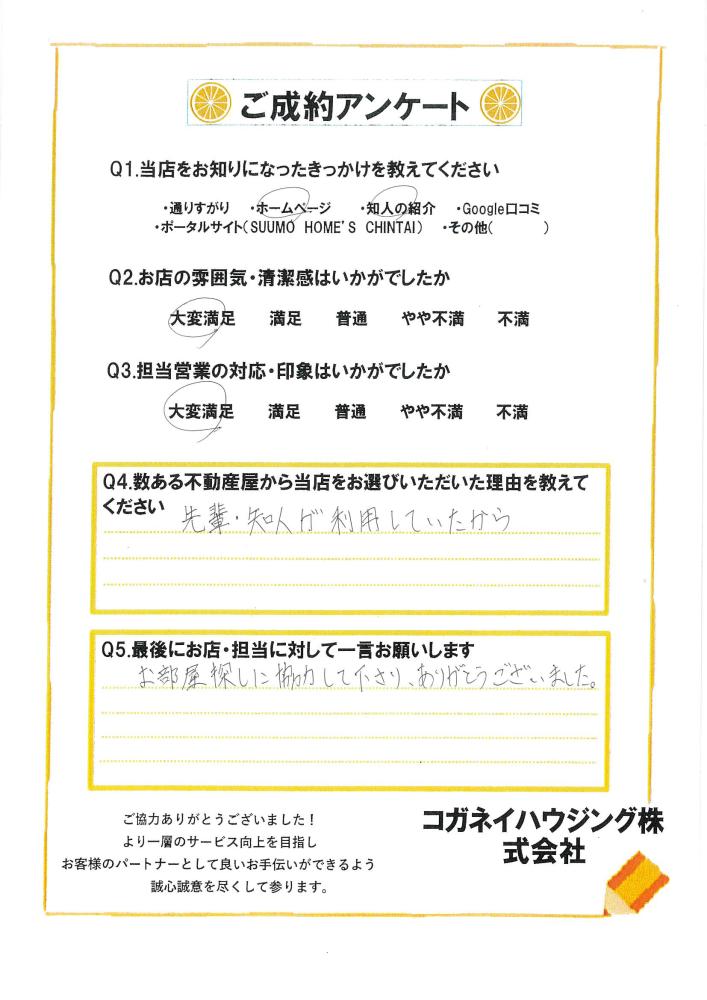 ご成約アンケート
Q1.当店をお知りになったきっかけを教えてください
・通りすがり ・ホームページ ・知人の紹介 ・Google口コミ
・ポータルサイト(SUUMO HOME'S CHINTAI) ・その他( )
Q2.お店の雰囲気・清潔感はいかがでしたか
大変満足 満足 普通 やや不満 不満
Q3.担当営業の対応・印象はいかがでしたか
大変満足 満足 普通 やや不満 不満
Q4.数ある不動産屋から当店をお選びいただいた理由を教えて
ください
先輩・知人が利用していたから
Q5.最後にお店・担当に対して一言お願いします
お部屋探しに協力して下さり、ありがとうございました。
ご協力ありがとうございました!
より一層のサービス向上を目指し
お客様のパートナーとして良いお手伝いができるよう
誠心誠意を尽くして参ります。
コガネイハウジング株
式会社